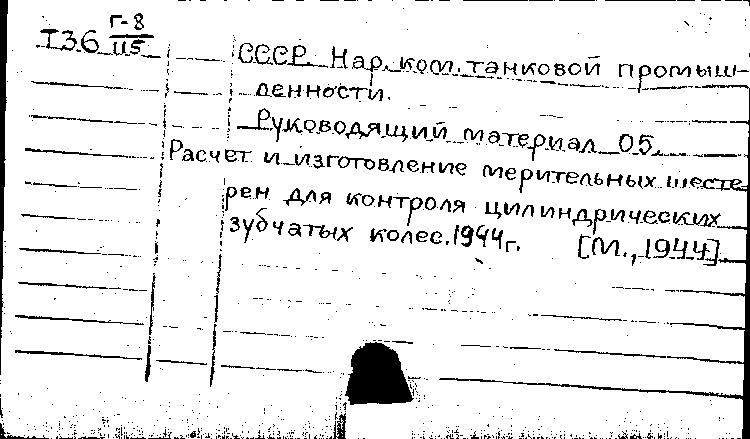 Г-8
I36 115
СССР. Нар. ком. танковой промыш-
ленности.
Руководящий материал 05.
Расчет и изготовление мерительных шесте
рен для контроля цилиндрических
зубчатых колес. 1944г. [М., 1944].